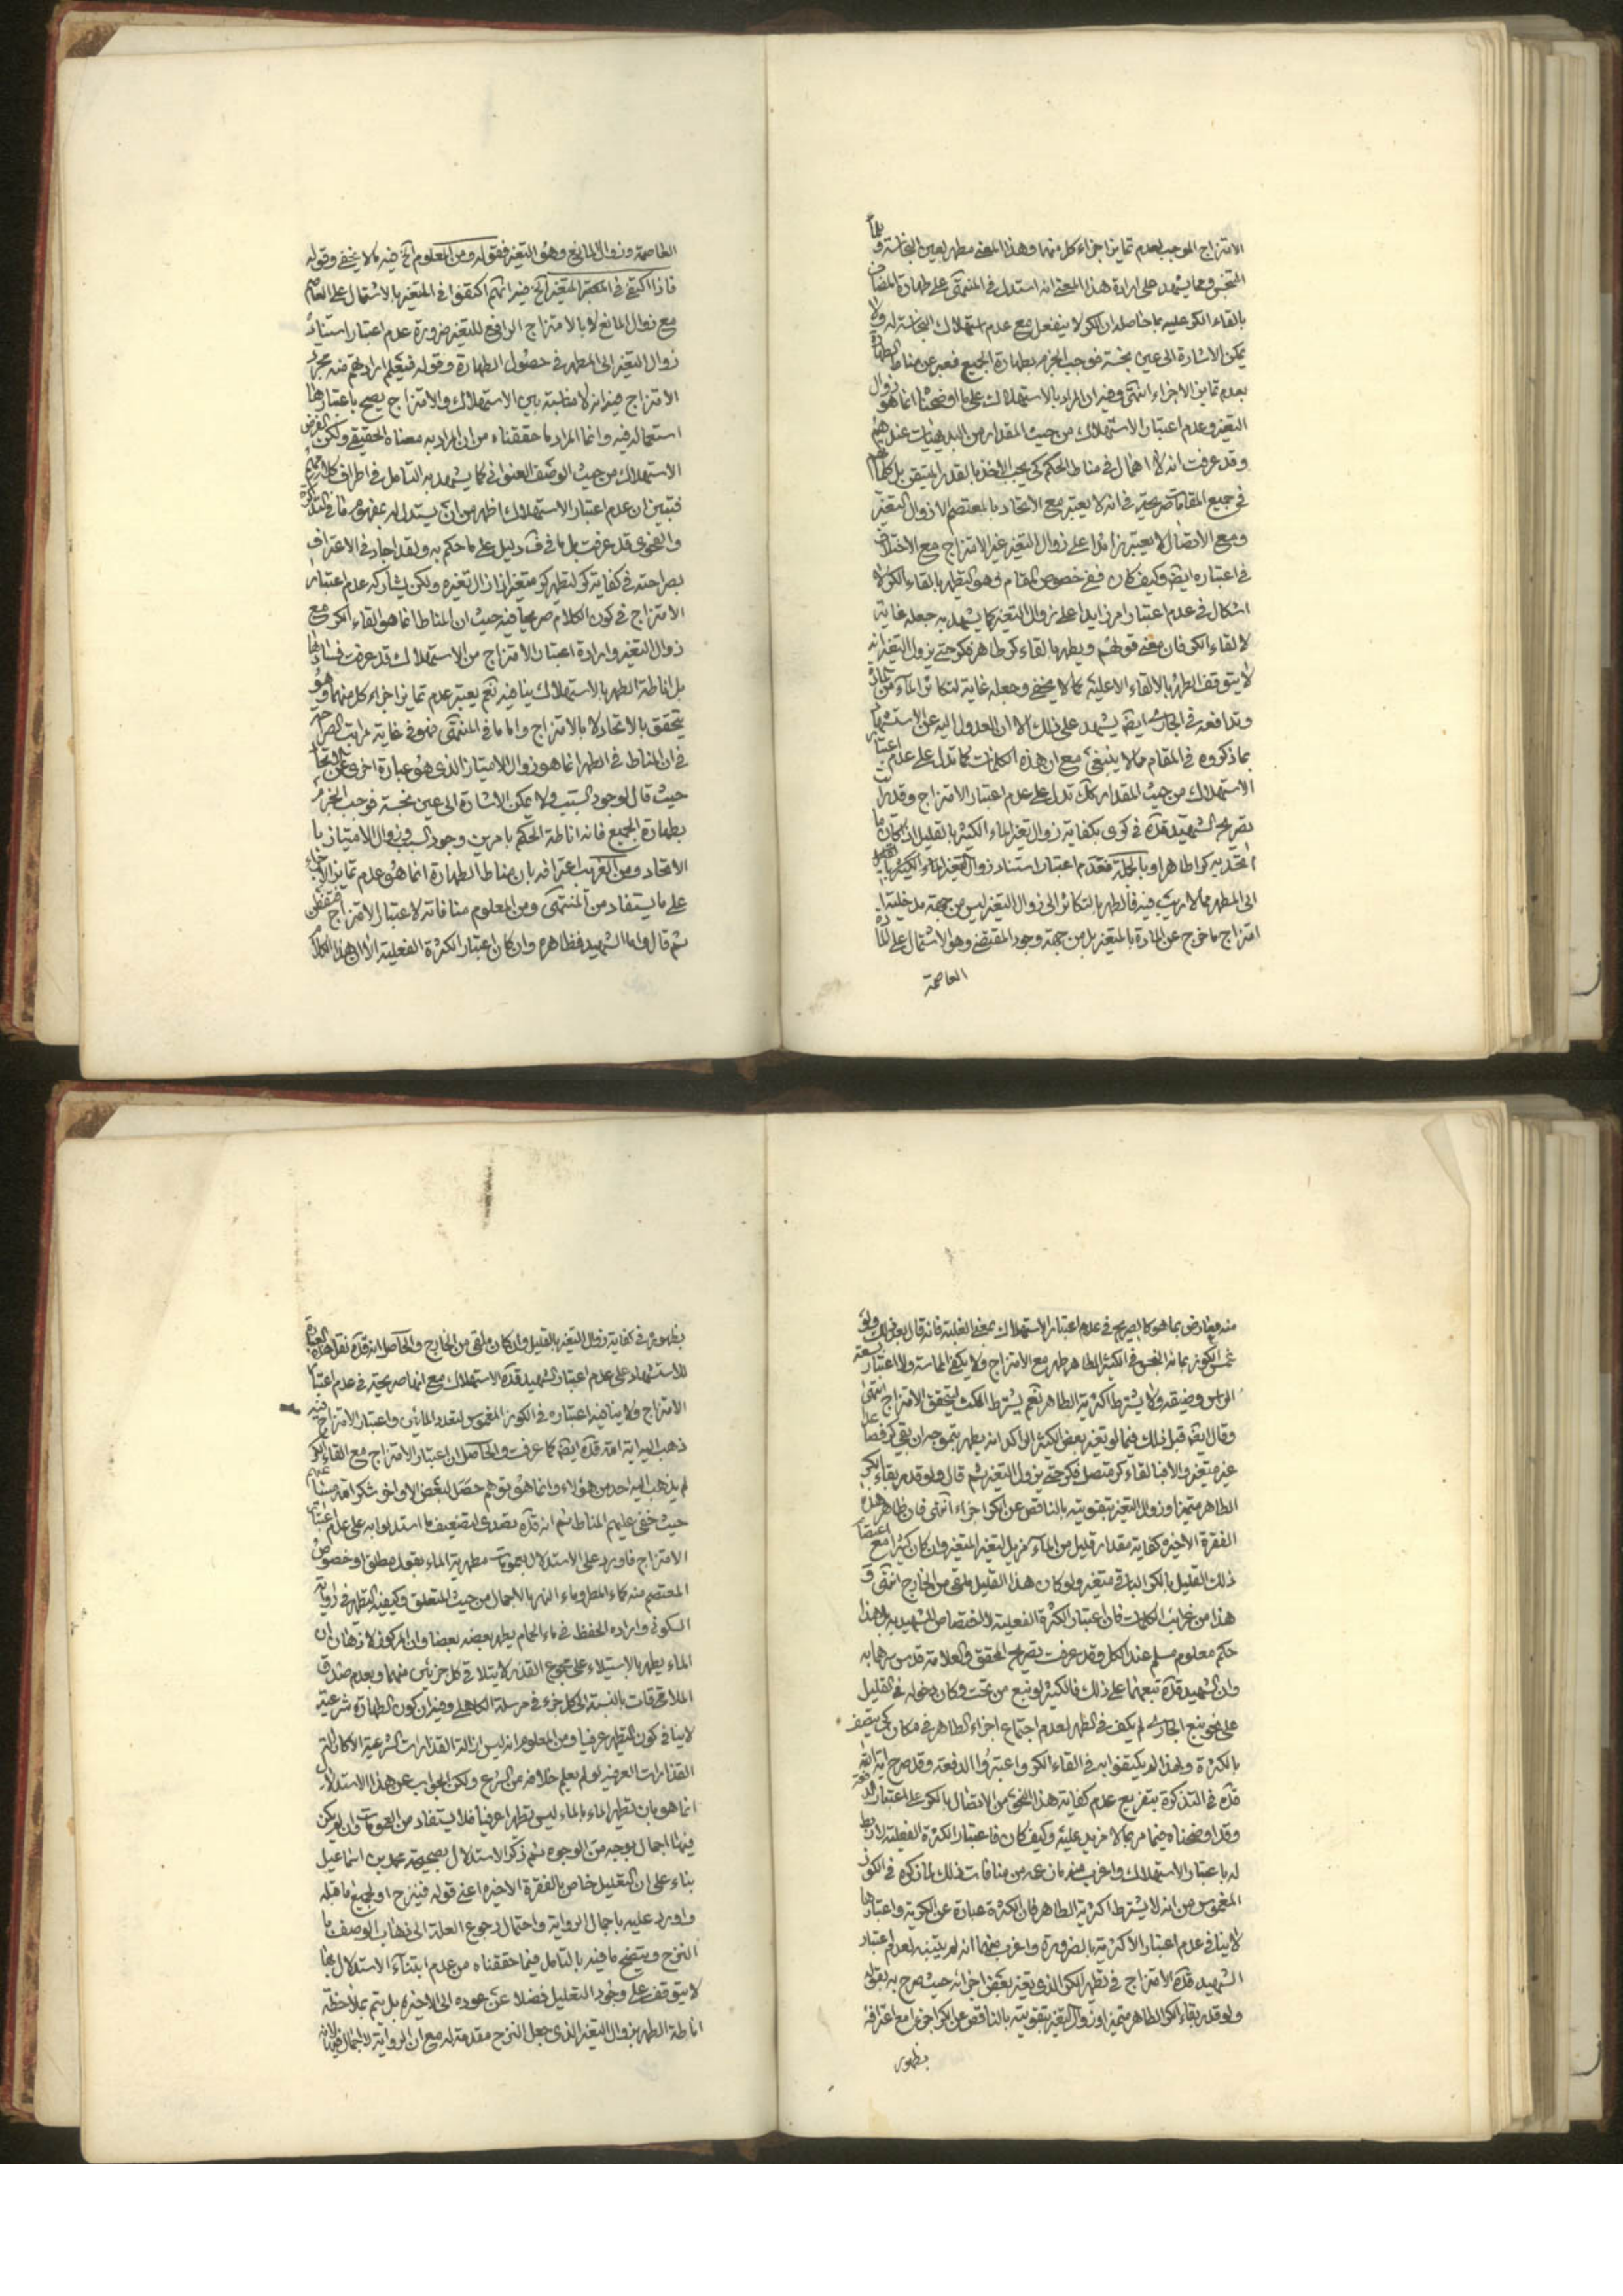 الامتزاج الموجب لعدم تمايز اجزاء كل منهما وهذا المعنى مطهر لعين النجاسة و
المتنجس ومما يشهد على ارادة هذا المعنى انه استدل في المنتهى على طهارة المضاف
بالقاء الكر عليه بما حاصله ان الكر لا ينفعل مع عدم استهلاك النجاسة له ولا
يمكن الاشارة الى عين نجسة فوجب الجزم بطهارة الجميع فعبر عن مناط الطهارة
بعدم تمايز الاجزاء انتهى وفيه ان المراد بالاستهلاك على ما اوضحنا انما هو زوال
التغير وعدم اعتبار الاستهلاك من حيث المقدار من البديهيات عندهم
وقد عرفت انه لا اهمال في مناط الحكم كي يجب الاخذ بالقدر المتيقن بل كلماتهم
في جميع المقامات صريحة في انه لا يعتبر مع الاتحاد بالمعتصم الا زوال التغير
ومع الاتصال لا يعتبر زائدا على زوال التغير غير الامتزاج مع الاختلاف
في اعتباره ايضا وكيف كان ففي خصوص المقام وهو التطهر بالقاء الكر لا
اشكال في عدم اعتبار امر زايد على زوال التغير كما يشهد به جعله غاية
لالقاء الكر فان معنى قولهم ويطهر بالقاء كر طاهر فكر حتى يزول التغير انه
لا يتوقف الطهر بالالقاء الا عليه كما لا يخفى وجعله غاية لتكاثر الماء من المادة
وتدافعه في الجاري ايضا يشهد على ذلك الا ان العدول اليه عن الاستشهاد
بما ذكروه في المقام مما لا ينبغي مع ان هذه الكلمات كما تدل على عدم اعتبار
الاستهلاك من حيث المقدار كك تدل على عدم اعتبار الامتزاج وقد رايت
تصريح الشهيد قده في كرى بكفاية زوال تغير الماء الكثير بالقليل اذا كان ما
اتحد به كرا طاهرا وبالجملة فعدم اعتبار استناد زوال تغير الماء الكثير بالقليل
الى المطهر مما لا ريب فيه فالطهر بالتكاثر الى زوال التغير ليس من جهة مدخلية
امتزاج ما خرج عن المادة بالمتغير بل من جهة وجود المقتضي وهو الاشتمال على المادة
العاصمة
العاصمة وزوال المانع وهو التغير فقوله ومن المعلوم الخ فيه ما لا يخفى وقوله
فاذا اكتفى في المعتبر المتغير الخ فيه انهم اكتفوا في المتغير بالاشتمال على العاصم
مع زوال المانع لا بالامتزاج الرافع للتغير ضرورة عدم اعتبار استناد
زوال التغير الى المطهر في حصول الطهارة وقوله فيعلم ارادتهم منه مجرد
الامتزاج فيه انه لا مناسبة بين الاستهلاك والامتزاج يصح باعتبارها
استعماله فيه وانما المراد ما حققناه من ان المراد به معناه الحقيقي ولكن الغرض
الاستهلاك من حيث الوصف العنواني كما يشهد به التأمل في اطراف كلماتهم
فتبين ان عدم اعتبار الاستهلاك اظهر من ان يستدل له بمفهوم ما في التذكرة
والفحوى قد عرفت بل ما في ف دليل على ما حكم به ولقد اجاد في الاعتراف
بصراحته في كفاية كر لتطهر كر متغير اذا زال تغيره ولكن يشاركه عدم اعتبار
الامتزاج في كون الكلام صريحا فيه حيث ان المناط انما هو القاء الكر مع
زوال التغير وارادة اعتبار الامتزاج من الاستهلاك قد عرفت فسادها
بل اناطة الطهر بالاستهلاك ينافيه نعم يعتبر عدم تمايز اجزاء كل منهما وهو
يتحقق بالاتحاد لا بالامتزاج واما ما في المنتهى فهو في غاية مراتب الصراحة
في ان المناط في الطهر انما هو زوال الامتياز الذي هو عبارة اخرى عن الاتحاد
حيث قال لوجود السبب ولا يمكن الاشارة الى عين نجسة فوجب الجزم
بطهارة الجميع فانه اناطة الحكم بامرين وجود السبب وزوال الامتياز با
الاتحاد ومن الغريب اعترافه بان مناط الطهارة انما هو عدم تمايز الاجزاء
على ما يستفاد من المنتهى ومن المعلوم منافاته لاعتبار الامتزاج
ثم قال واما الشهيد فظاهره وان كان اعتبار الكثرة الفعلية الا ان هذا الكلام
منه معارض بما هو كالصريح في عدم اعتبار الاستهلاك بمعنى الغلبة فانه قال بعد ذلك ولو
غمس الكوز بمائه النجس في الكثير الطاهر طهر مع الامتزاج ولا يكفي المماسة ولا اعتبار بسعة
الراس وضيقه ولا يشترط اكثرية الطاهر نعم يشترط المكث ليتحقق الامتزاج انتهى
وقال ايضا قبل ذلك فيما لو تغير بعض الكثير الراكد انه يطهر بتموجه ان بقي كر فصاعدا
غير متغير والا فبالقاء كر متصل فكر حتى يزول التغير ثم قال ولو قدر بقاء الكر
الطاهر متميزا وزوال التغير بتقويته بالناقص عن الكر اجزاء انتهى فان ظاهر هذه
الفقرة الاخيرة كفاية مقدار قليل من الماء مزيل لتغير المتغير وان كان كثيرا مع اعتضاد
ذلك القليل بالكر الباقي متغير ولو كان هذا القليل ملقى من الخارج انتهى و
هذا من غرائب الكلمات فان اعتبار الكثرة الفعلية لا اختصاص للشهيد به بل هذا
حكم معلوم مسلم عند الكل وقد عرفت تصريح المحقق والعلامة قدس سرهما به
وان الشهيد قده تبعهما على ذلك فالكثير لو نبع من تحت وكان دخوله في القليل
على نحو نبع الجاري لم يكف في الطهر لعدم اجتماع اجزاء الطاهر في مكان كي يتصف
بالكثرة ولهذا لم يكتفوا به في القاء الكر واعتبروا الدفعة وقد صرح اية الله
قده في التذكرة بتفريع عدم كفاية هذا النحو من الاتصال بالكر على اعتبار الدفعة
وقد اوضحناه فيما مر بما لا مزيد عليه وكيف كان فاعتبار الكثرة الفعلية لا ربط
له باعتبار الاستهلاك واغرب منه ما زعمه من منافات ذلك لما ذكره في الكوز
المغموس من انه لا يشترط اكثرية الطاهر فان الكثرة عبارة عن الكرية واعتبارها
لا ينافي عدم اعتبار الاكثرية بالضرورة واغرب منهما انه لم يتنبه لعدم اعتبار
الشهيد قده الامتزاج في تطهر الكر الذي تغير بعض اجزائه حيث صرح به بقوله
ولو قدر بقاء الكر الطاهر متميزا وزوال التغير بتقويته بالناقص عن الكر اجزء مع اعترافه
بظهور
بظهوره في كفاية زوال التغير بالقليل وان كان ملقى من الخارج والحاصل انه قده نقل هذه العبارة
للاستشهاد على عدم اعتبار الشهيد قده الاستهلاك مع انها صريحة في عدم اعتبار
الامتزاج ولا ينافيه اعتباره في الكوز المغموس لتعدد المائين واعتبار الامتزاج فيه
ذهب اليه اية الله قده ايضا كما عرفت والحاصل ان اعتبار الامتزاج مع القاء الكر
لم يذهب اليه احد من هؤلاء وانما هو توهم حصل لبعض الاواخر شكر الله مساعيهم
حيث خفي عليهم المناط ثم انه قده تصدى لتضعيف ما استدلوا به على عدم اعتبار
الامتزاج فاورد على الاستدلال بعمومات مطهرية الماء بقول مطلق او خصوص
المعتصم منه كماء المطر وماء النهر بالاجمال من حيث المتعلق وكيفية التطهر في رواية
السكوني وايراده الحفظ في ماء الحمام يطهر بعضه بعضا وان المركوز في الاذهان ان
الماء يطهر بالاستيلاء على مجموع القذر لا بتلاقي كل جزئين منهما وبعدم صدق
الملاقات بالنسبة الى كل جزء في مرسلة الكاهلي وفيه ان كون الطهارة شرعية
لا ينافي كون التطهر عرفيا ومن المعلوم انه ليس ازالة القذارات الشرعية الا كازالة
القذارات العرفية لو لم يعلم خلافه من الشرع ولكن الجواب عن هذا الاستدلال
انما هو بان تطهر الماء بالماء ليس تطهرا عرفيا فلا يستفاد من العمومات وان لم يكن
فيها اجمال بوجه من الوجوه ثم ذكر الاستدلال بصحيحة محمد بن اسماعيل
بناء على ان التعليل خاص بالفقرة الاخيرة اعني قوله فينزح او لجميع ما قبله
واورد عليه باجمال الرواية واحتمال رجوع العلة الى ذهاب الوصف با
النزح ويتضح ما فيه بالتامل فيما حققناه من عدم ابتناء الاستدلال بها
لا يتوقف على وجود التعليل فضلا عن عوده الى الاخيرة بل يتم بملاحظة
اناطة الطهر بزوال التغير الذي جعل النزح مقدمة له مع ان الرواية لا اجمال فيها